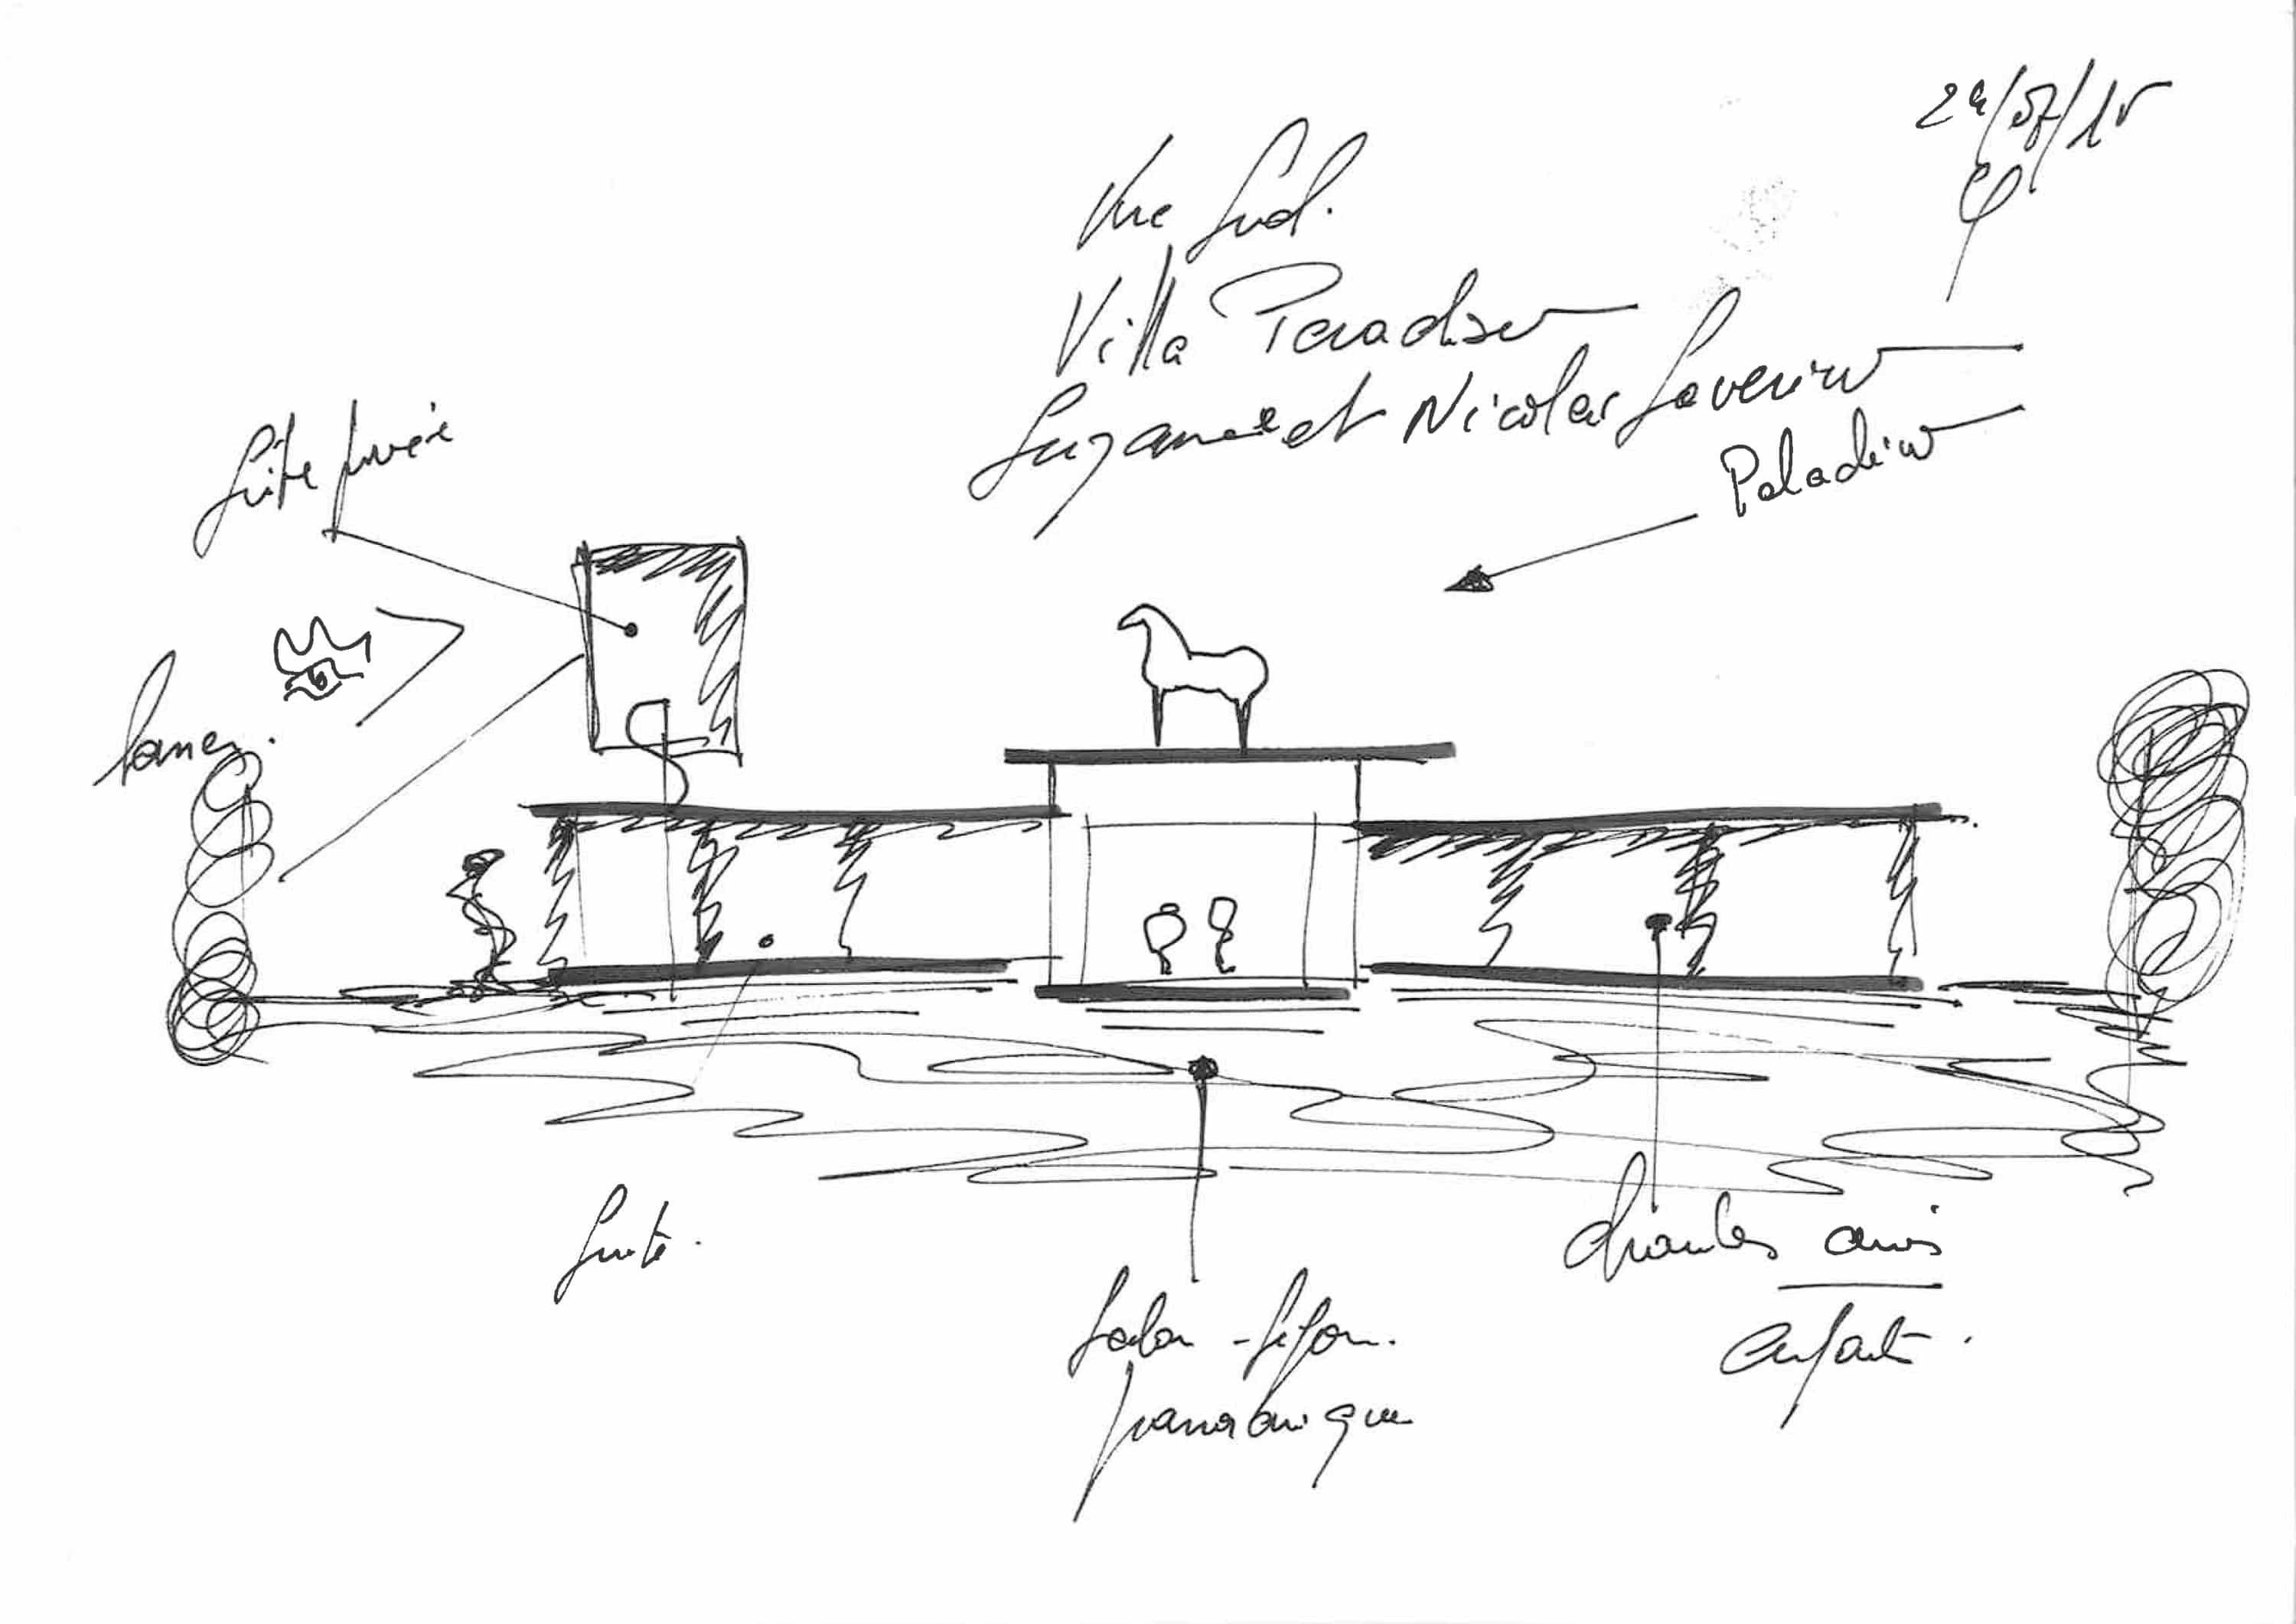 29/07/15
Vue Sud.
Villa Paradiso
Suzanne et Nicolas Saverino
Paladino
Suite privée
Suite.
Salon - Séjour.
panoramique
chambres amis
enfants.